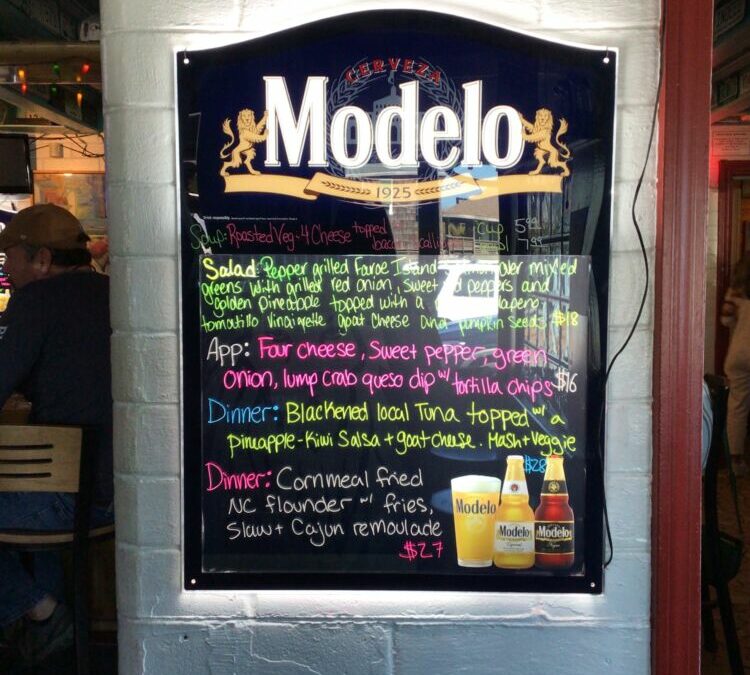 CERVEZA
Modelo
1925
Soup: Roasted Veg + 4 Cheese topped
Cup 5.99
bacon 7.99
Salad: Pepper grilled Faroe Island over mixed
greens with grilled red onion, sweet peppers and
golden pineapple topped with a
tomatillo vinaigrette goat cheese and pumpkin seeds $18
App: Four cheese, sweet pepper, green
onion, lump crab queso dip w/ tortilla chips $16
Dinner: Blackened local Tuna topped w/ a
pineapple-kiwi salsa + goat cheese. Mash + Veggie
$28
Dinner: Cornmeal fried
NC flounder w/ fries,
slaw + Cajun remoulade
$27
Modelo
Modelo
Modelo